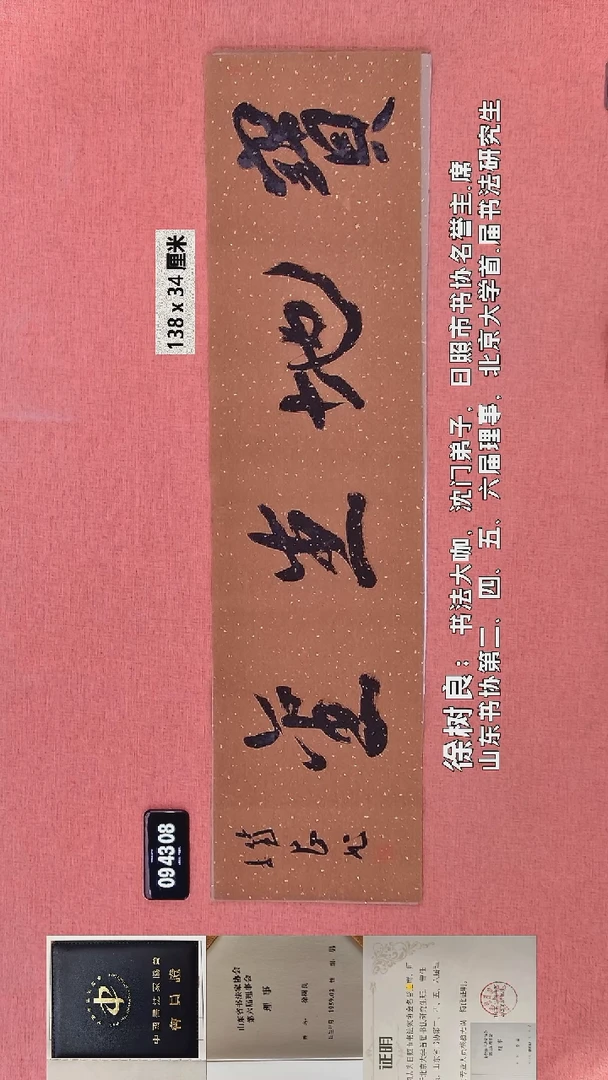 138 x 34 厘米
寶地生金
樹良
徐树良：书法大咖，沈门弟子，日照市书协名誉主.席
山东书协第二、四、五、六届理事，北京大学首.届书法研究生
09 43 08
中國書法家協會
會員證
山东省书法家协会
第六届理事会
理 事
证明